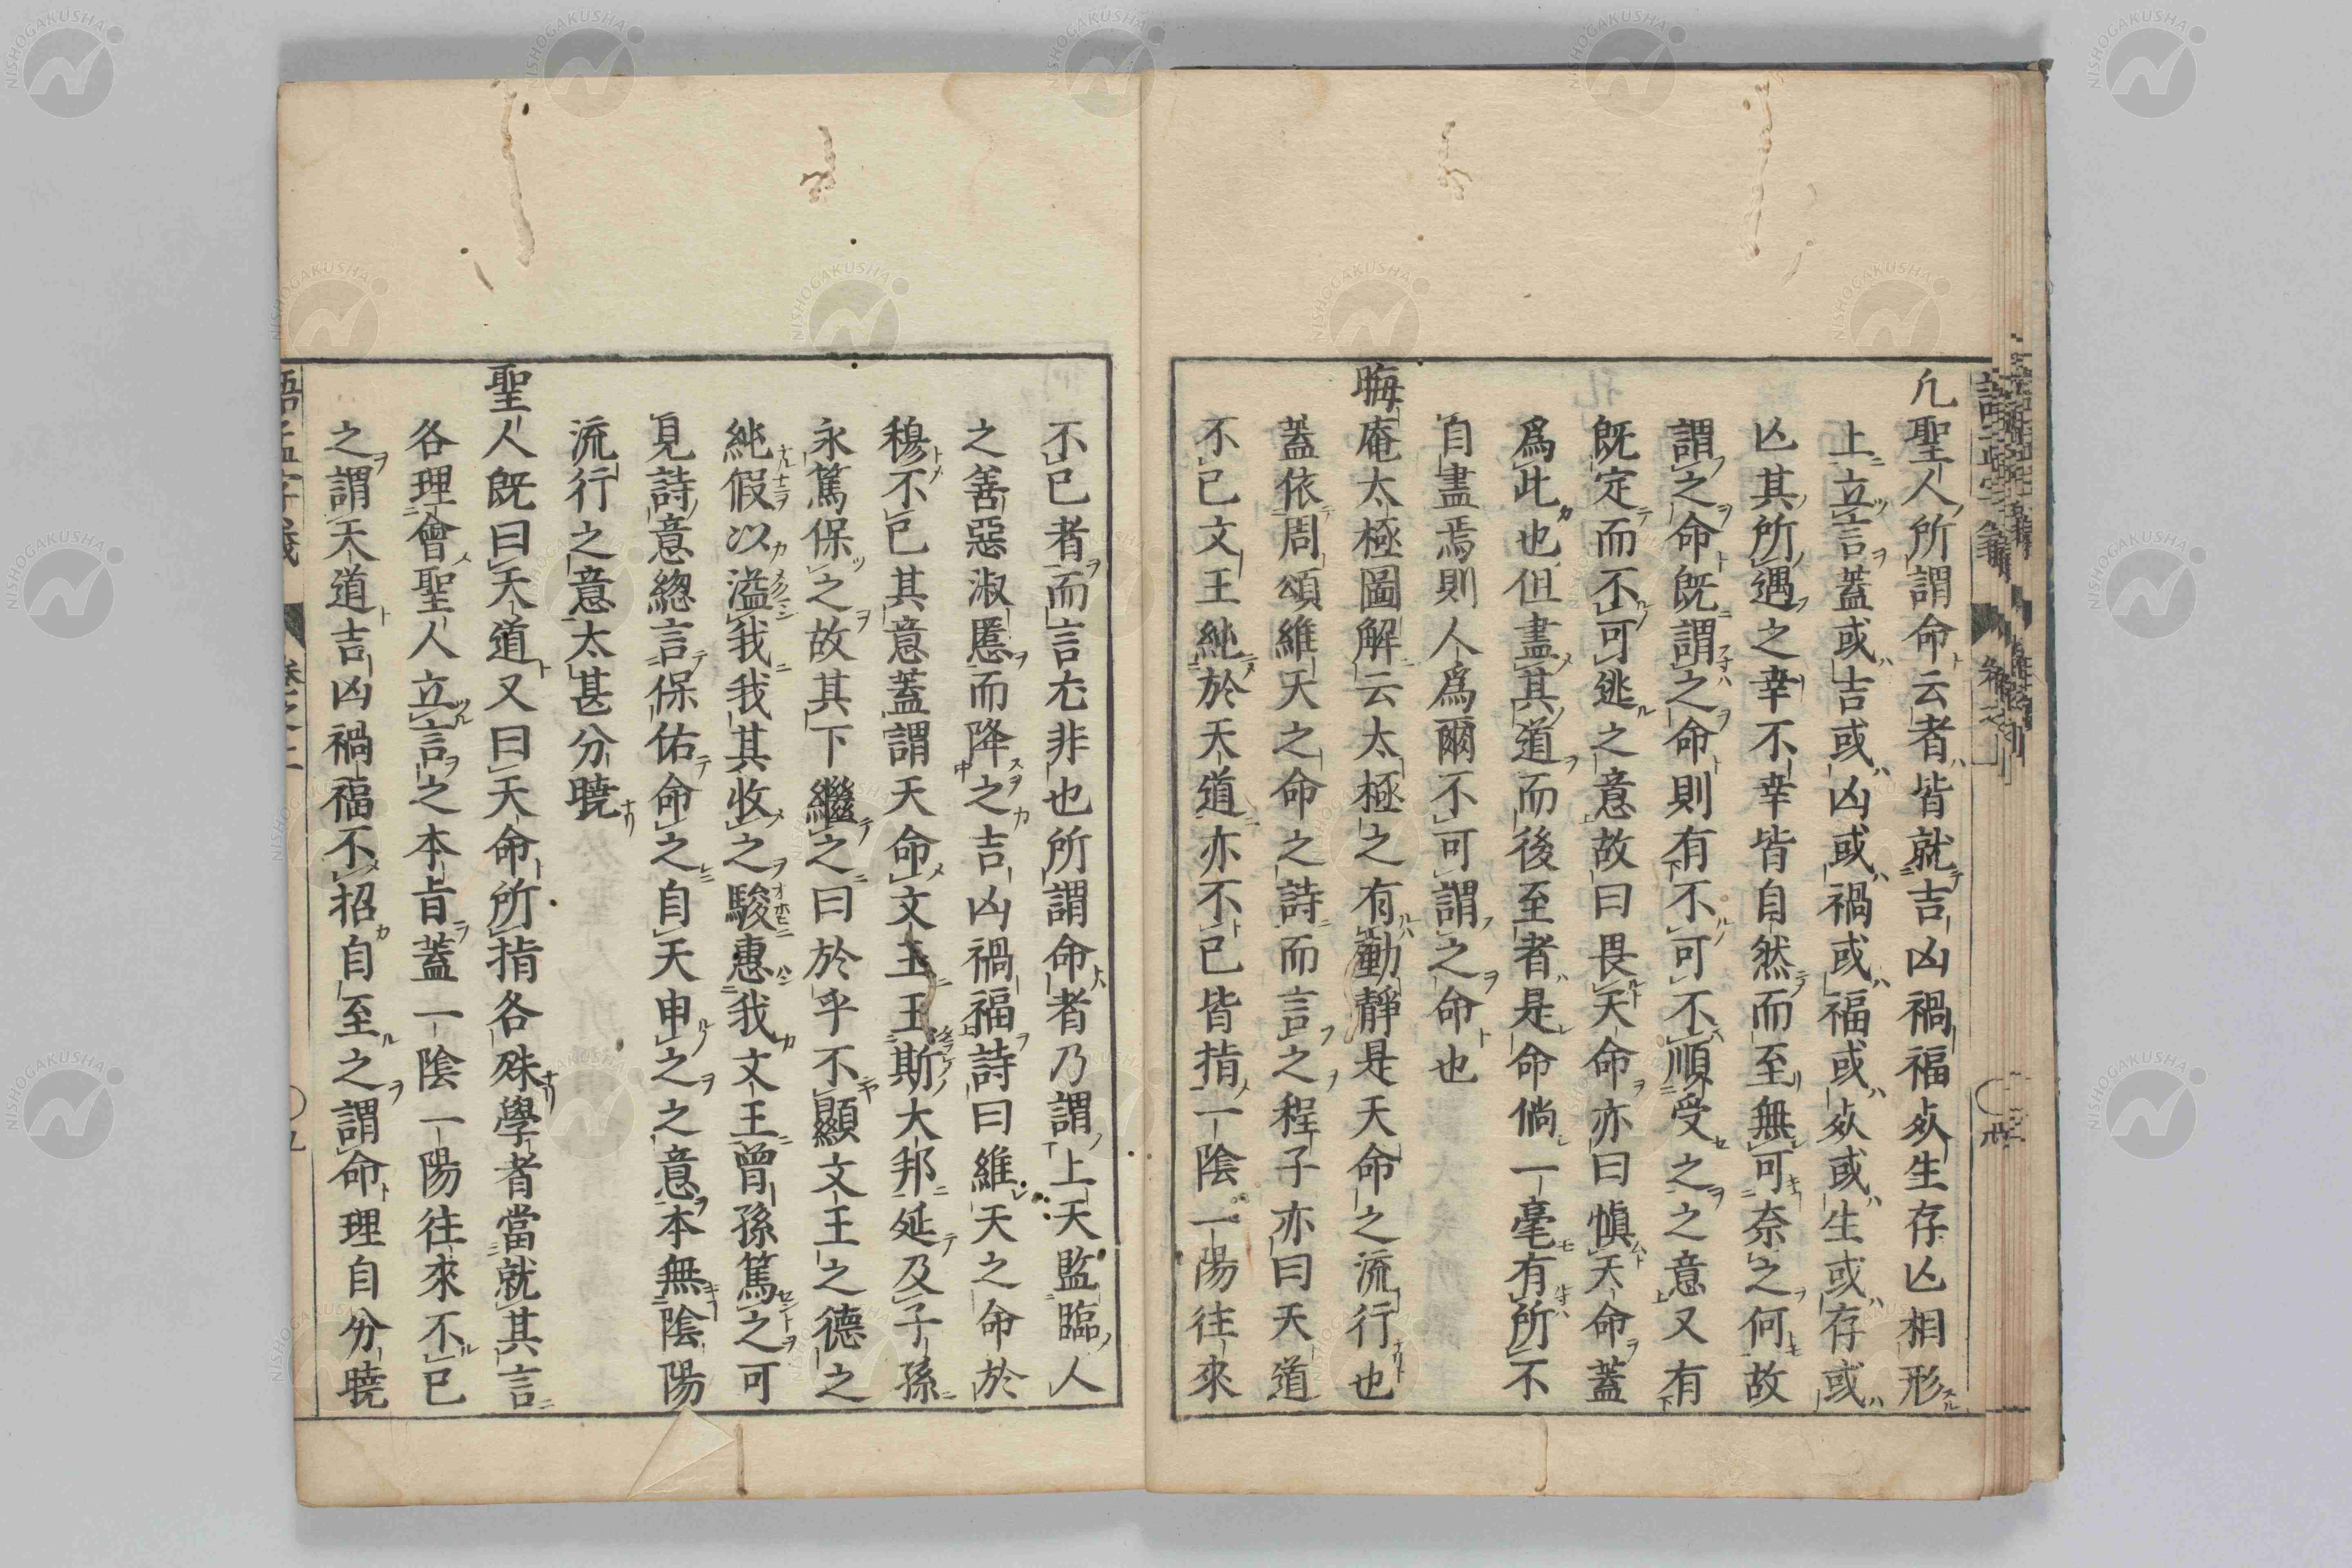 凢聖人所謂命云者皆就吉凶禍福死生存亾相形
上立言蓋或吉或凶或禍或福或死或生或存或
亾其所遇之幸不幸皆自然而至無可奈之何故
謂之命既謂之命則有不可不順受之之意又有
既定而不可逃之意故曰畏天命亦曰愼天命蓋
爲此也但盡其道而後至者是命倘一毫有所不
自盡焉則人爲爾不可謂之命也
晦庵太極圖解云太極之有動靜是天命之流行也
蓋依周頌維天之命之詩而言之程子亦曰天道
不已文王純於天道亦不已皆指一陰一陽往來
不已者而言尤非也所謂命者乃謂上天監臨人
之善惡淑慝而降之吉凶禍福詩曰維天之命於
穆不已其意蓋謂天命文王王斯大邦延及子孫
永篤保之故其下繼之曰於乎不顯文王之德之
純假以溢我我其收之駿惠我文王曾孫篤之可
見詩意總言保佑命之自天申之之意本無陰陽
流行之意太甚分曉
聖人既曰天道又曰天命所指各殊學者當就其言
各理會聖人立言之本旨蓋一陰一陽往來不已
之謂天道吉凶禍福不招自至之謂命理自分曉
語孟字義 卷之上